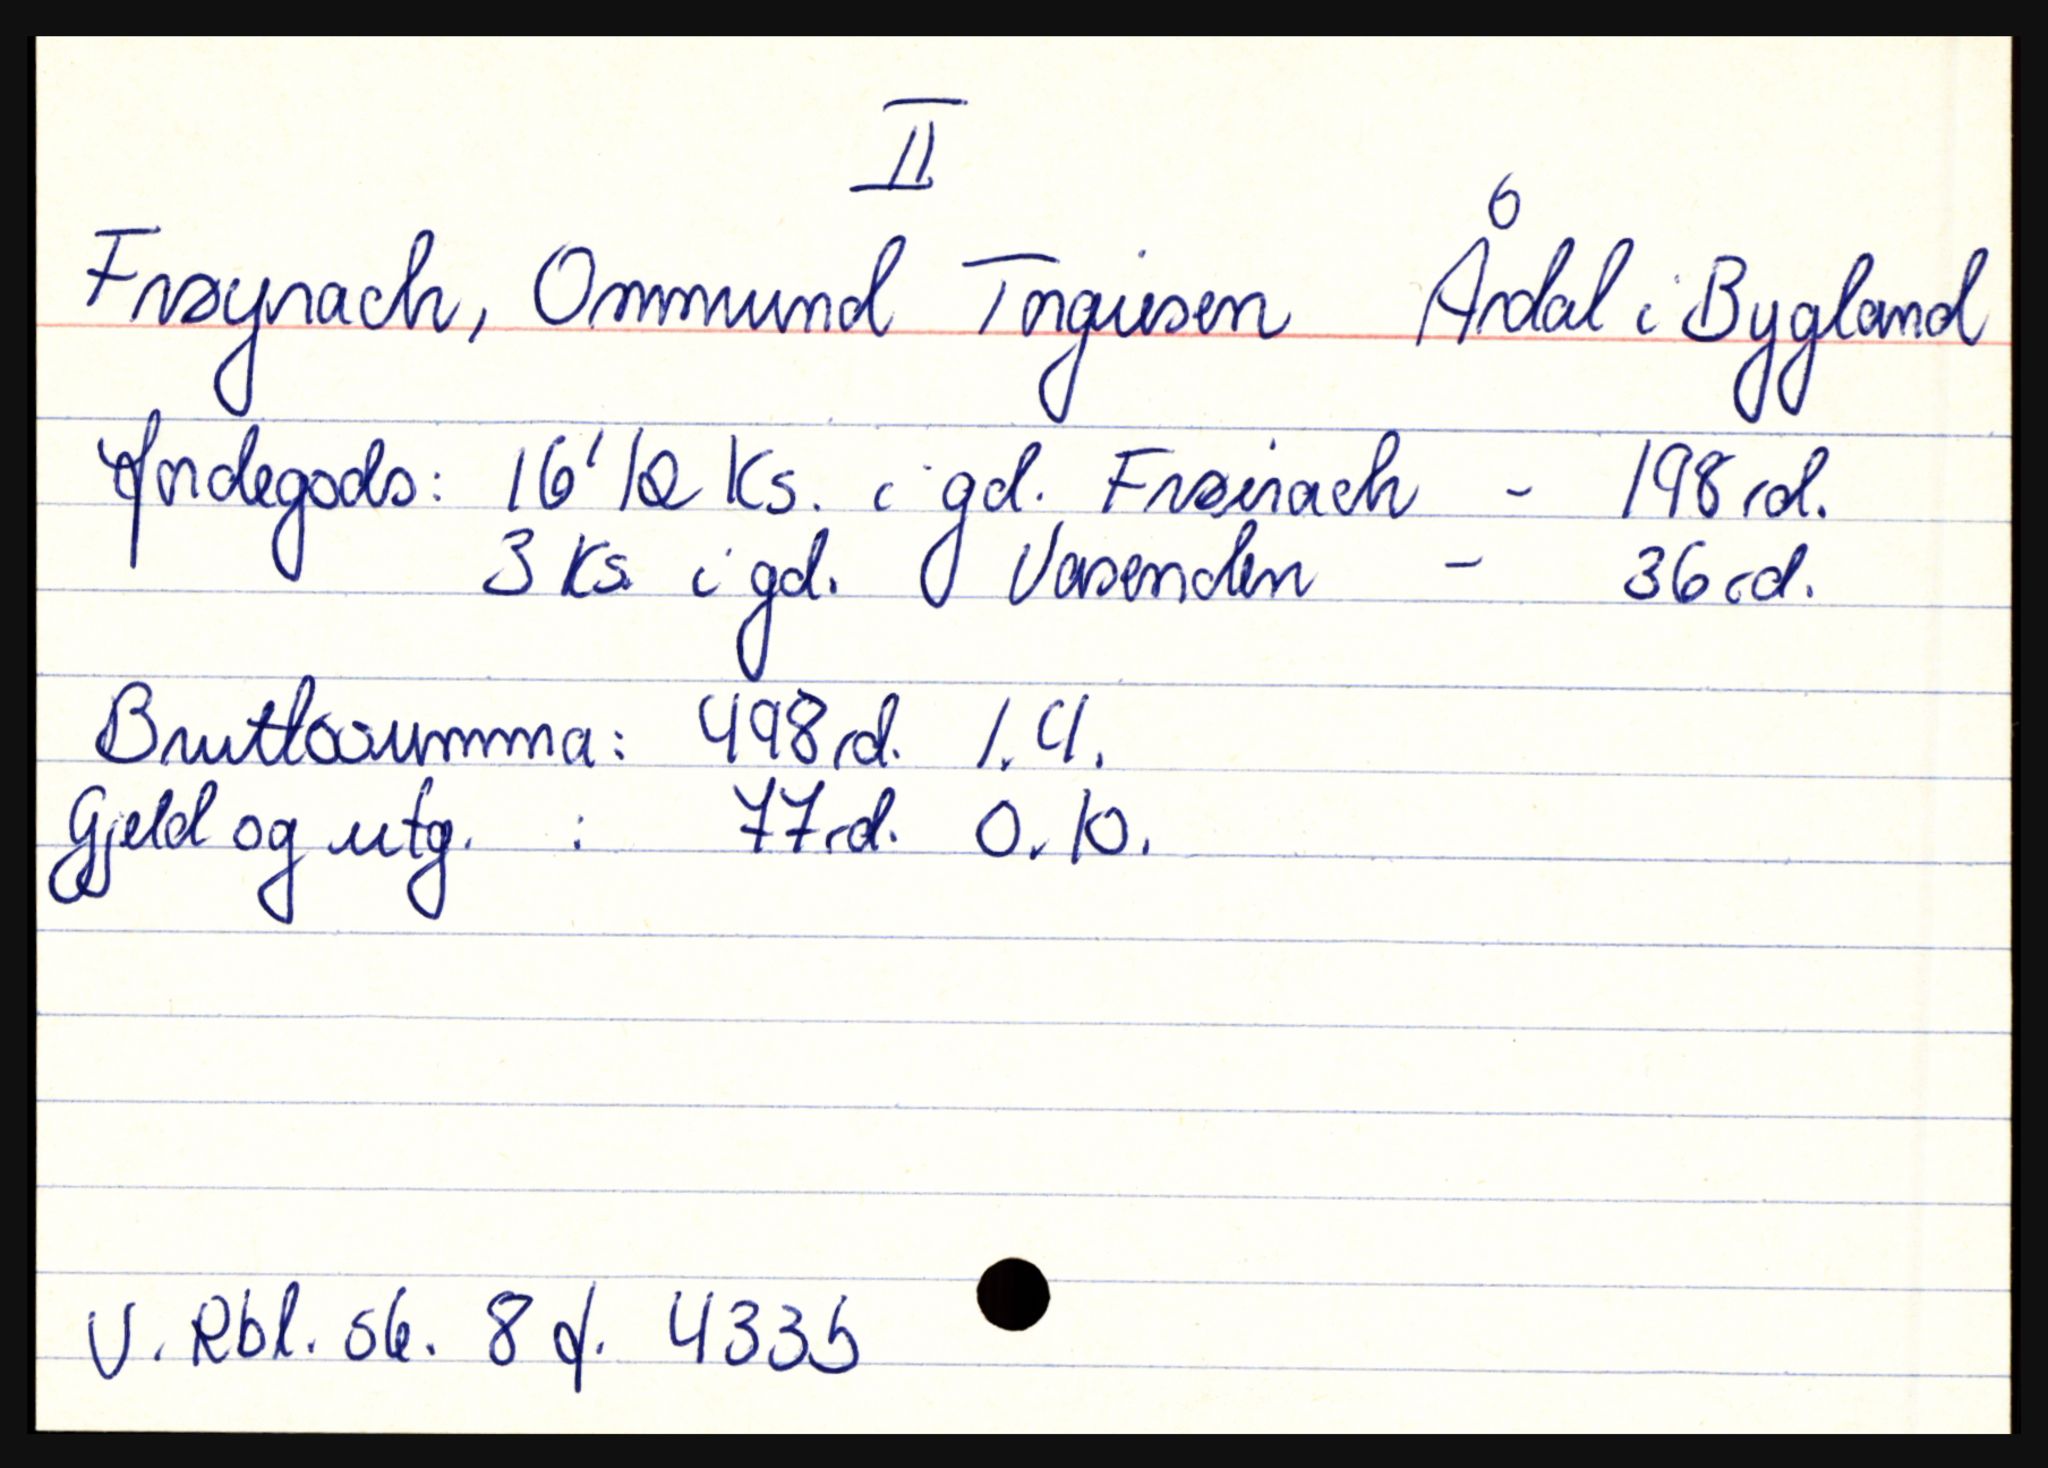 II
Frøyrach, Ommund Torgiusen Årdal i Bygland
Jordegods: 16 1/2 Ks. i gd. Frøirach - 198 rd.
3 Ks. i gd. Vasenden - 36 rd.
Bruttosumma: 498 rd. 1. 4.
Gjeld og utg. : 77 rd. 0. 10.
V. Rbl. sk. 8 f. 433b